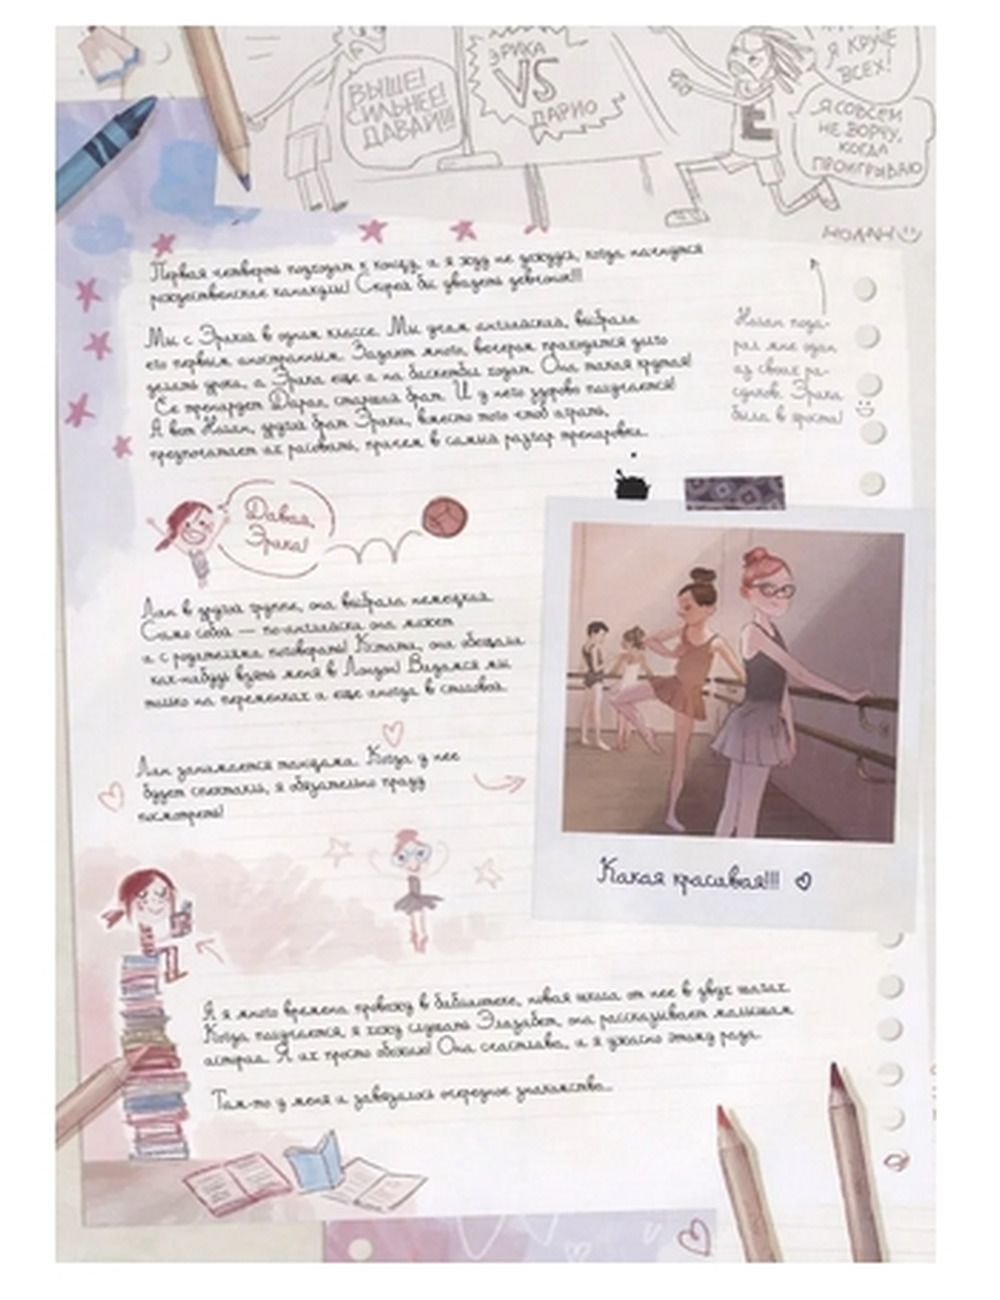 ВЫШЕ!
СИЛЬНЕЕ!
ДАВАЙ!!!
ЭРИКА
VS
ДАРИО
Я КРУЧЕ
ВСЕХ!
Я СОВСЕМ
НЕ ВОРЧУ,
КОГДА
ПРОИГРЫВАЮ
НОЛАН
Первая четверть подходит к концу, и я жду не дождусь, когда начнутся
рождественские каникулы! Скорей бы увидеть девчонок!!!
Мы с Эрикой в одном классе. Мы учим английский, выбрали
его первым иностранным. Задают много, вечером приходится долго
делать уроки, а Эрика еще и на баскетбол ходит. Она такая крутая!
Ее тренирует Дарио, старший брат. И у него здорово получается!
А вот Нолан, другой брат Эрики, вместо того чтоб играть,
предпочитает их рисовать, причем в самый разгар тренировки.
Нолан пода-
рил мне один
из своих ри-
сунков. Эрика
была в ярости!
Давай,
Эрика!
Лин в другой группе, она выбрала немецкий.
Само собой — по-английски она может
и с родителями поговорить! Кстати, она обещала
как-нибудь взять меня в Лондон! Видимся мы
только на переменках и еще иногда в столовой.
Лин занимается танцами. Когда у нее
будет спектакль, я обязательно приду
посмотреть!
Какая красивая!!!
А я много времени провожу в библиотеке, новая школа от нее в двух шагах.
Когда получается, я хожу слушать Элизабет, она рассказывает малышам
истории. Я их просто обожаю! Она счастлива, и я ужасно этому рада.
Там-то у меня и завязалось очередное знакомство...